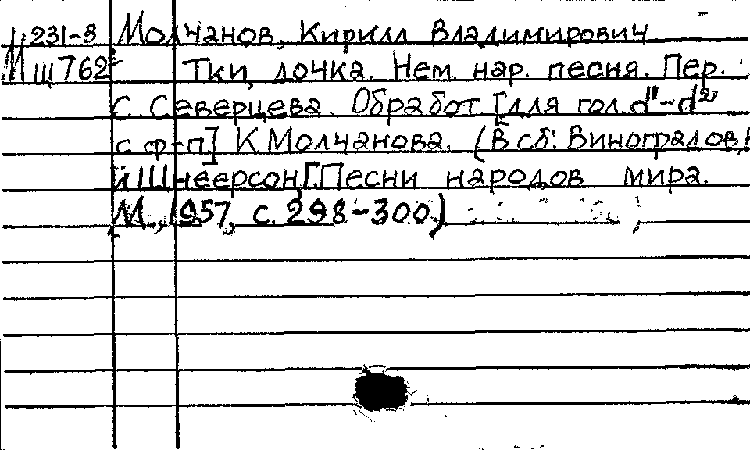 231-8 Молчанов, Кирилл Владимирович
М Ш762 Тки, дочка. Нем. нар. песня. Пер.
С. Северцева. Обработ [для гол. d¹-d²
с ф-п] К. Молчанова. (В сб: Виноградов,
и Шнеерсон, Г. Песни народов мира.
М., 1957, с. 298-300.)